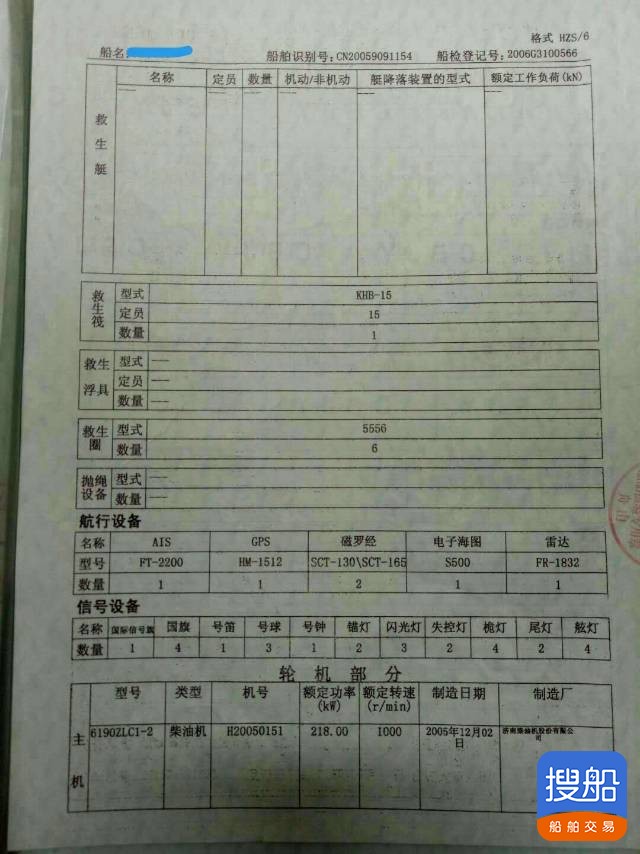 格式 HZS/6
船名: 船舶识别号: CN20059091154 船检登记号: 2006G3100566
救生艇 名称 定员 数量 机动/非机动 艇降落装置的型式 额定工作负荷(kN)
—— —— —— —— —— ——
救生筏 型式 KHB-15
定员 15
数量 1
救生浮具 型式 ——
定员 ——
数量 ——
救生圈 型式 5556
数量 6
抛绳设备 型式 ——
数量 ——
航行设备
名称 AIS GPS 磁罗经 电子海图 雷达
型号 FT-2200 HM-1512 SCT-130\SCT-165 S500 FR-1832
数量 1 1 2 1 1
信号设备
名称 国际信号旗 国旗 号笛 号球 号钟 锚灯 闪光灯 失控灯 桅灯 尾灯 舷灯
数量 1 4 1 3 1 2 3 2 4 2 4
轮机部分
主机 型号 类型 机号 额定功率(kW) 额定转速(r/min) 制造日期 制造厂
6190ZLC1-2 柴油机 H20050151 218.00 1000 2005年12月02日 济南柴油机股份有限公司
搜船
船舶交易